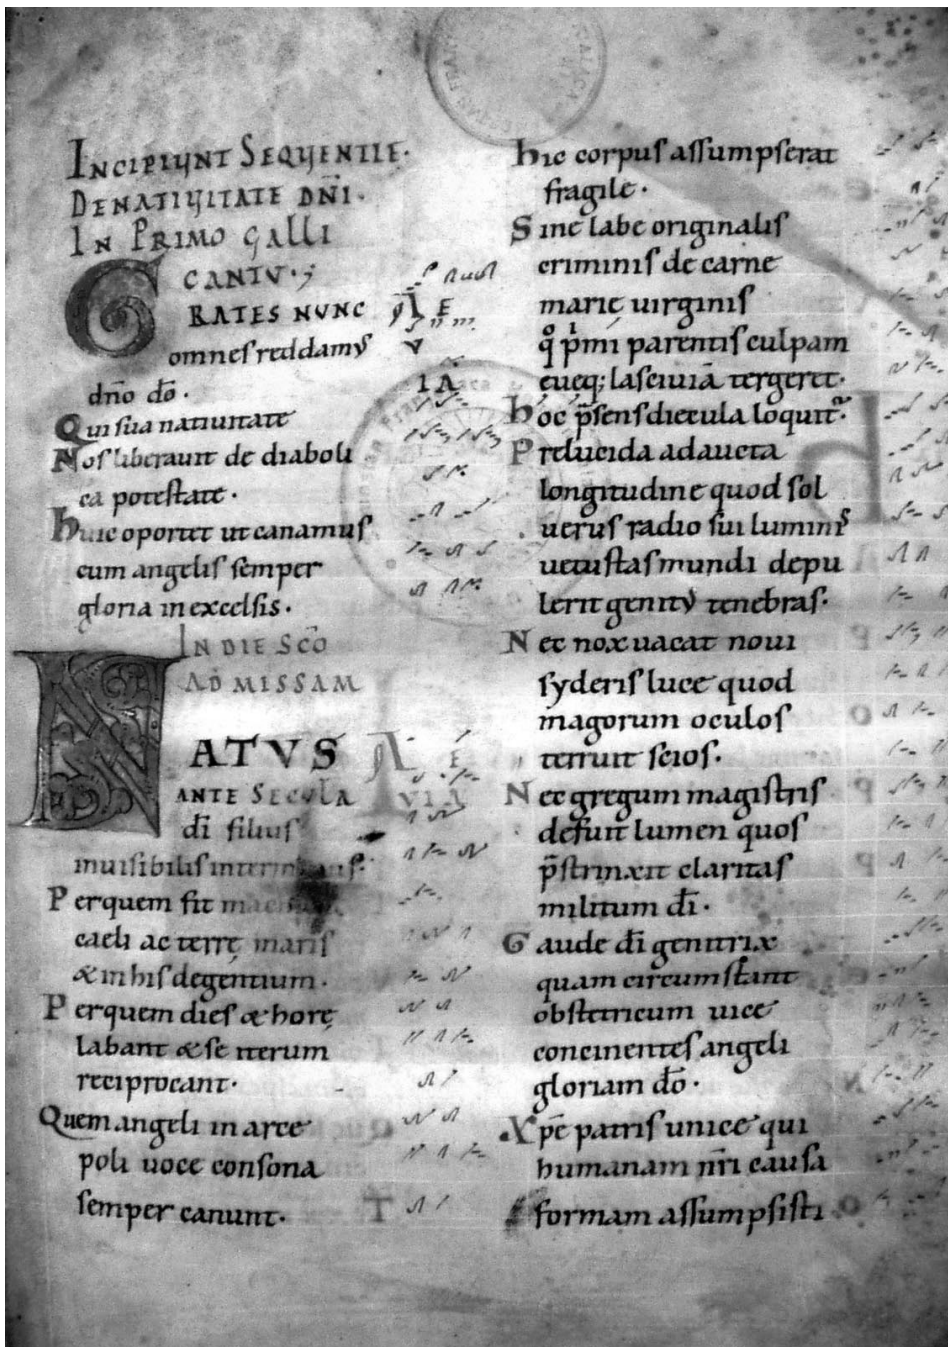 INCIPIUNT SEQUENTIE·
DE NATIUITATE DNĪ·
IN PRIMO GALLI
CANTV·;
GRATES NVNC
omnes reddamꝰ
dn̄o dō·
Qui sua natiuitate
Nos liberauit de diaboli
ca potestate·
huic oportet ut canamus
cum angelis semper
gloria in excelsis·
IN DIE SC̄O
AD MISSAM
NATVS
ANTE SECULA
dī filius
inuisibilis
Per quem fit
caeli ac terrę maris
& in his degentium·
Per quem dies & horę
labant & se iterum
reciprocant·
Quem angeli in arce
poli uoce consona
semper canunt·
hic corpus assumpserat
fragile·
Sine labe originalis
criminis de carne
marię uirginis
qͦ pⁱmi parentis culpam
euęq; lasciuiā tergeret·
hoc p̄sens diecula loquit᷑·
Prelucida adaucta
longitudine quod sol
uerus radio sui luminis
uetustas mundi depu
lerit genitꝰ tenebras·
Nec nox uacat noui
syderis luce quod
magorum oculos
terruit scios·
Nec gregum magistris
defuit lumen quos
p̄strinxit claritas
militum dī·
Gaude dī genitrix
quam circumstant
obstetricum uice
concinentes angeli
gloriam dō·
Xp̄e patris unice qui
humanam nr̄i causa
formam assumpsisti